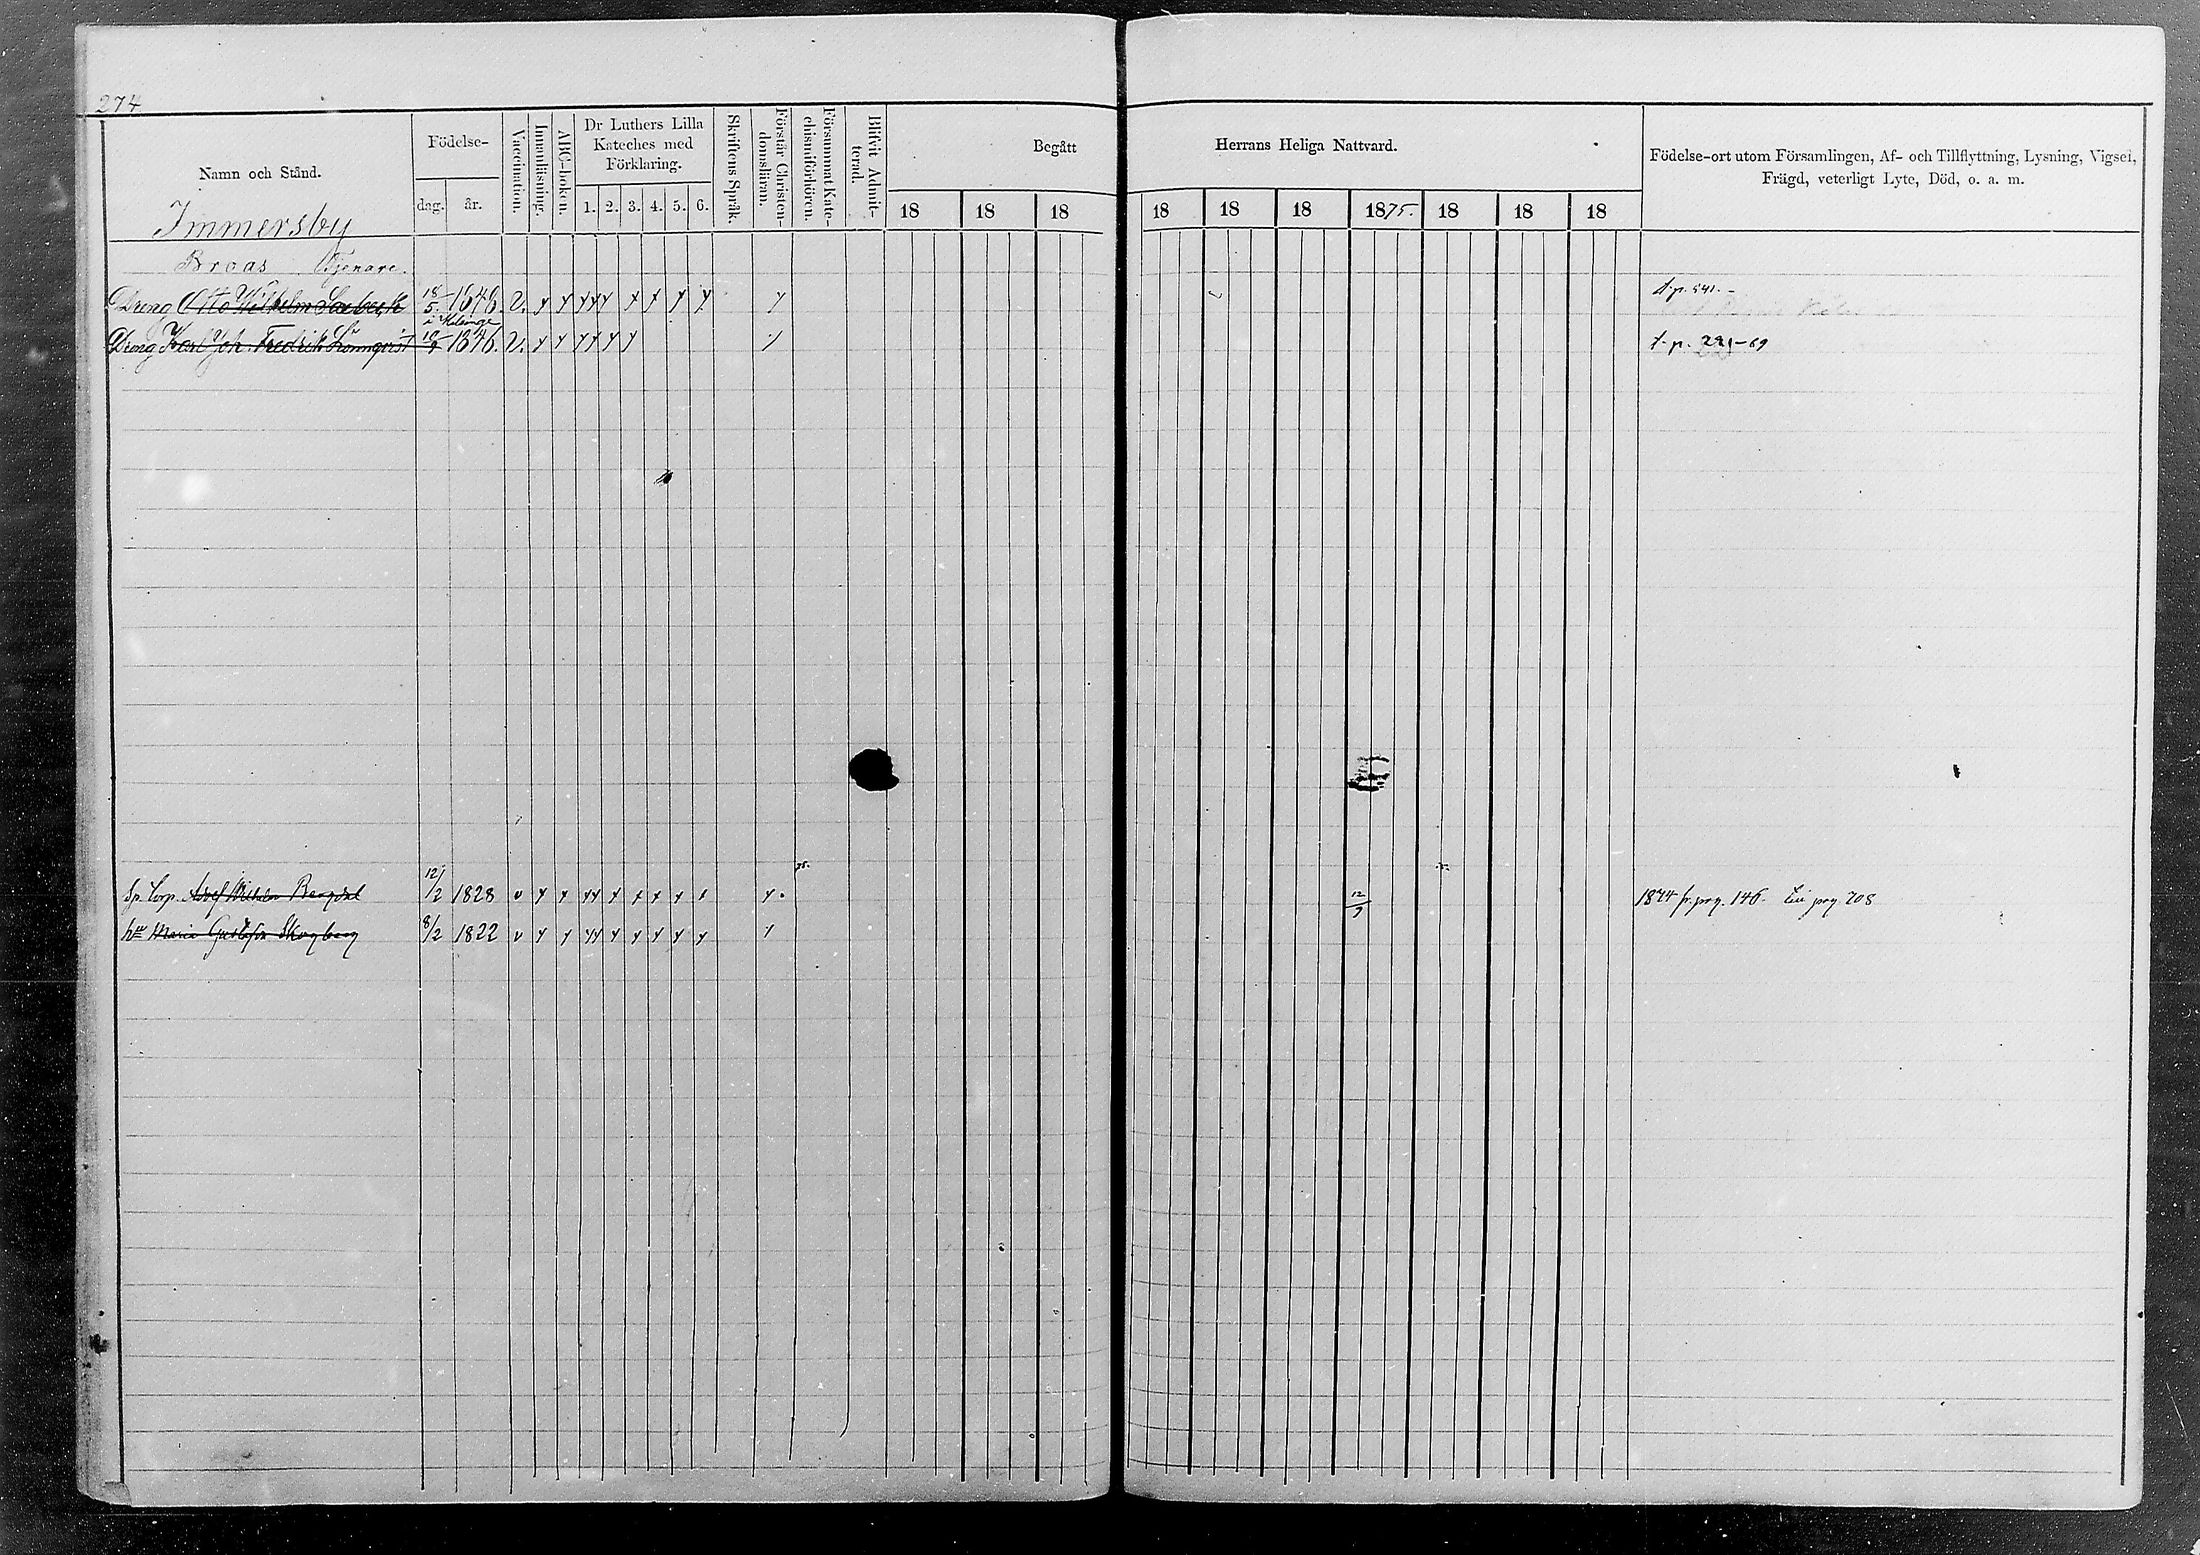 274
Namn och Stånd.
Födelse-
dag.
år.
Vaccination.
Innanläsning.
ABC-boken.
Dr Luthers Lilla
Kateches med
Förklaring.
1. 2. 3. 4. 5. 6.
Skriftens Språk.
Förstår Christen-
domsläran.
Försummat Kate-
chismiförhören.
Blifvit Admit-
terad.
Begått
Herrans Heliga Nattvard.
18 18 18 18 18 18 1875. 18 18 18
Födelse-ort utom Församlingen, Af- och Tillflyttning, Lysning, Vigsel,
Frägd, veterligt Lyte, Död, o. a. m.
Immersby
Broas Tjenare.
Dreng Otto Wilhelm 18/5 1846. v. t.p. 541.-
Dreng Karl Joh. Fredrik Lönnqvist 1846. v. t.p. 291-69
75.
Sp. Torp. Adolf Wilhelm Bergdal 12/2 1828 v 12/9 1874 fr. pag. 146. Till pag 208
hu Maria Gustafva Skogberg 8/2 1822 v